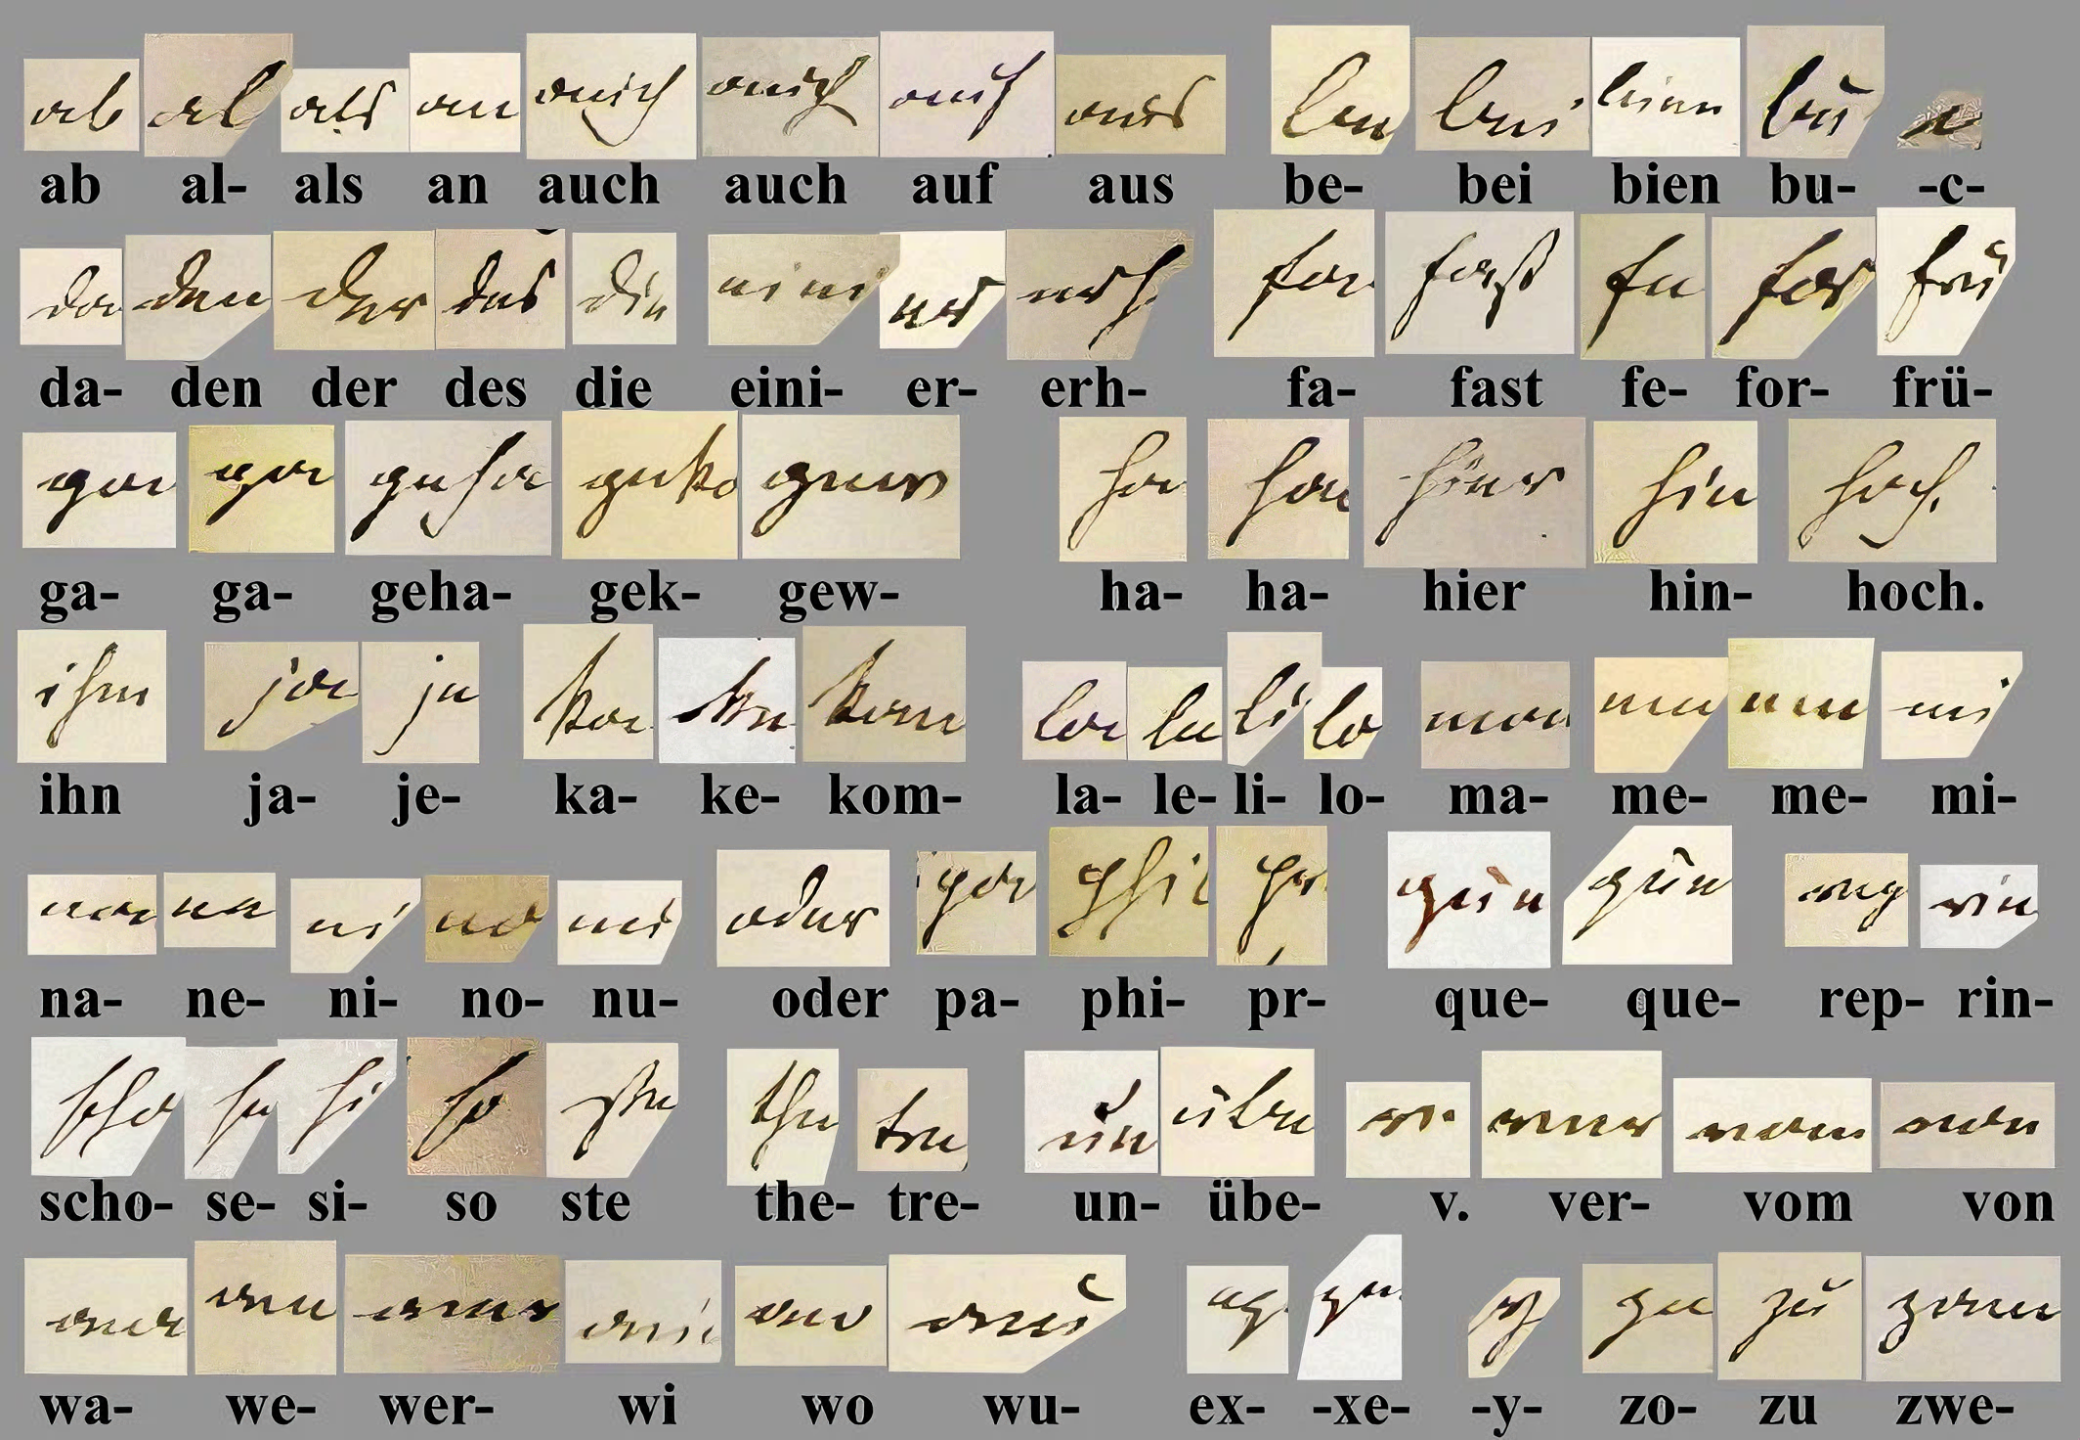 ab al- als an auch auch auf aus be- bei bien bu- -c-
da- den der des die eini- er- erh- fa- fast fe- for- frü-
ga- ga- geha- gek- gew- ha- ha- hier hin- hoch.
ihn ja- je- ka- ke- kom- la- le- li- lo- ma- me- me- mi-
na- ne- ni- no- nu- oder pa- phi- pr- que- que- rep- rin-
scho- se- si- so ste the- tre- un- übe- v. ver- vom von
wa- we- wer- wi wo wu- ex- -xe- -y- zo- zu zwe-